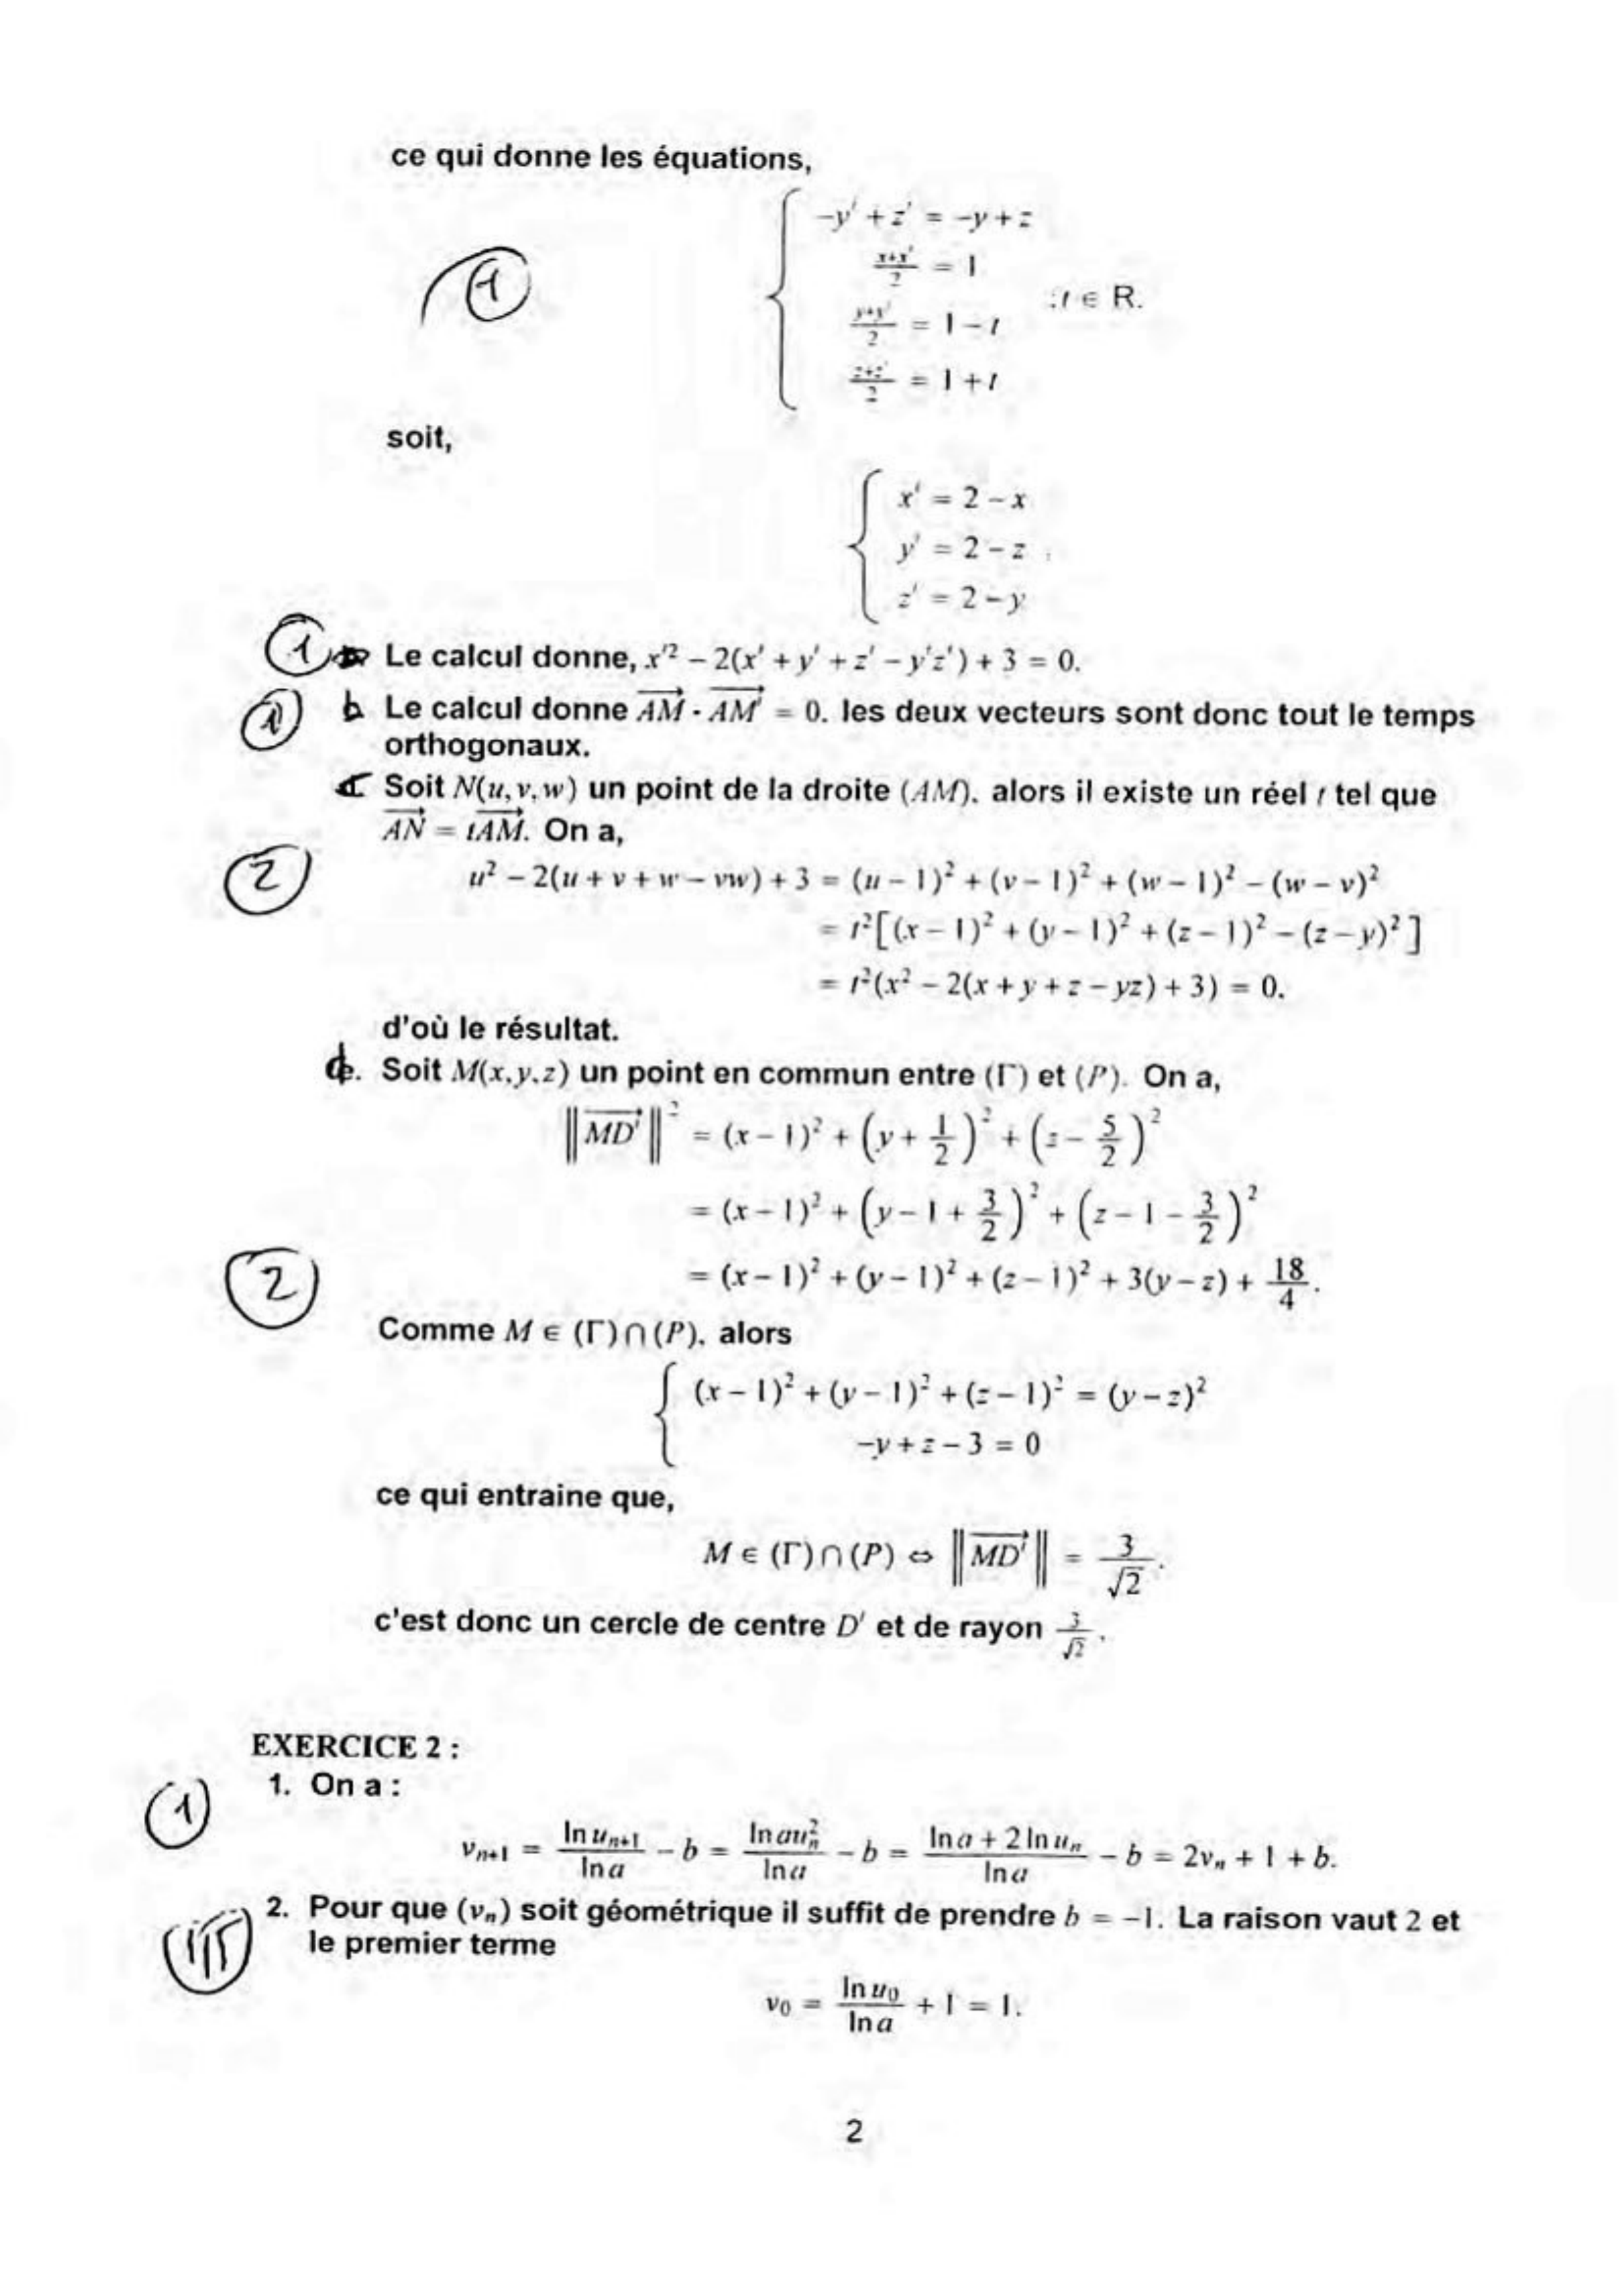 ce qui donne les équations,
-y' + z' = -y + z
(x+x')/2 = 1
(y+y')/2 = 1 - t
(z+z')/2 = 1 + t
; t ∈ R.
①
soit,
x' = 2 - x
y' = 2 - z
z' = 2 - y
.
① Le calcul donne, x'² - 2(x' + y' + z' - y'z') + 3 = 0.
① b Le calcul donne AM⃗ · AM'⃗ = 0. les deux vecteurs sont donc tout le temps
orthogonaux.
Soit N(u, v, w) un point de la droite (AM). alors il existe un réel t tel que
AN⃗ = tAM⃗. On a,
② u² - 2(u + v + w - vw) + 3 = (u - 1)² + (v - 1)² + (w - 1)² - (w - v)²
= t²[(x - 1)² + (y - 1)² + (z - 1)² - (z - y)²]
= t²(x² - 2(x + y + z - yz) + 3) = 0.
d'où le résultat.
d. Soit M(x, y, z) un point en commun entre (Γ) et (P). On a,
‖MD'⃗‖² = (x - 1)² + (y + 1/2)² + (z - 5/2)²
= (x - 1)² + (y - 1 + 3/2)² + (z - 1 - 3/2)²
② = (x - 1)² + (y - 1)² + (z - 1)² + 3(y - z) + 18/4.
Comme M ∈ (Γ) ∩ (P). alors
(x - 1)² + (y - 1)² + (z - 1)² = (y - z)²
-y + z - 3 = 0
ce qui entraine que,
M ∈ (Γ) ∩ (P) ⇔ ‖MD'⃗‖ = 3/√2.
c'est donc un cercle de centre D' et de rayon 3/√2.
EXERCICE 2 :
1. On a :
①
vₙ₊₁ = ln uₙ₊₁/ln a - b = ln auₙ²/ln a - b = (ln a + 2 ln uₙ)/ln a - b = 2vₙ + 1 + b.
2. Pour que (vₙ) soit géométrique il suffit de prendre b = -1. La raison vaut 2 et
le premier terme
v₀ = ln u₀/ln a + 1 = 1.
2